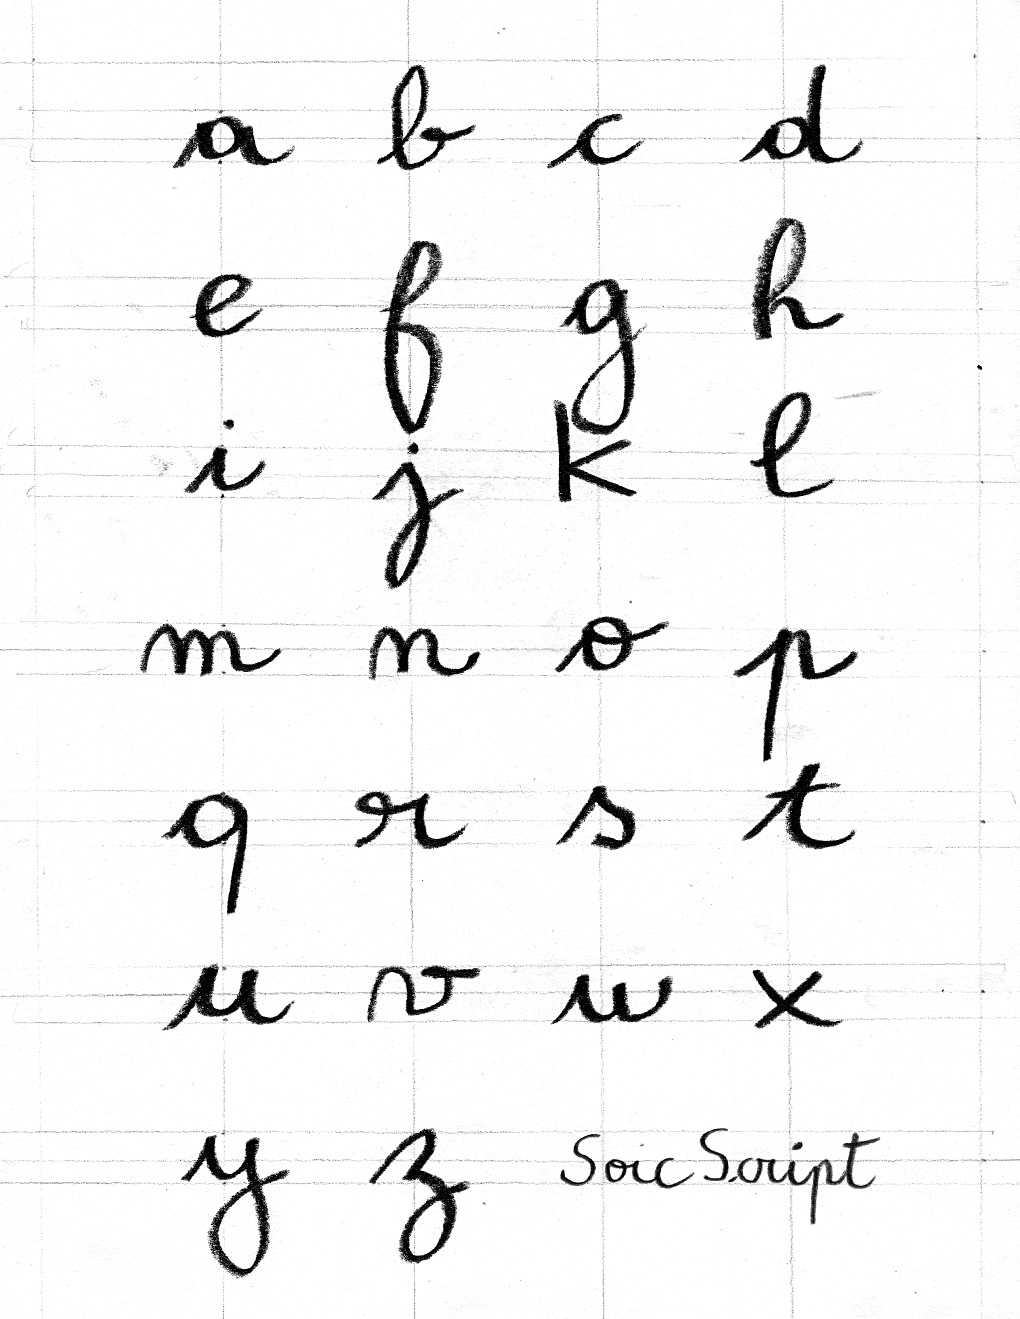 a b c d
e f g h
i j k l
m n o p
q r s t
u v w x
y z Soic Script